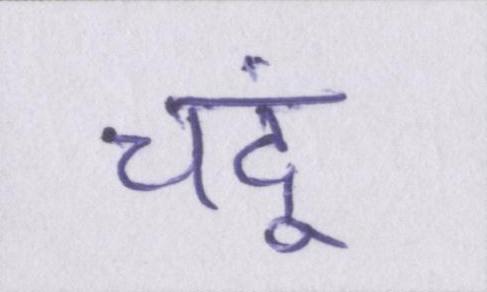 चदूं